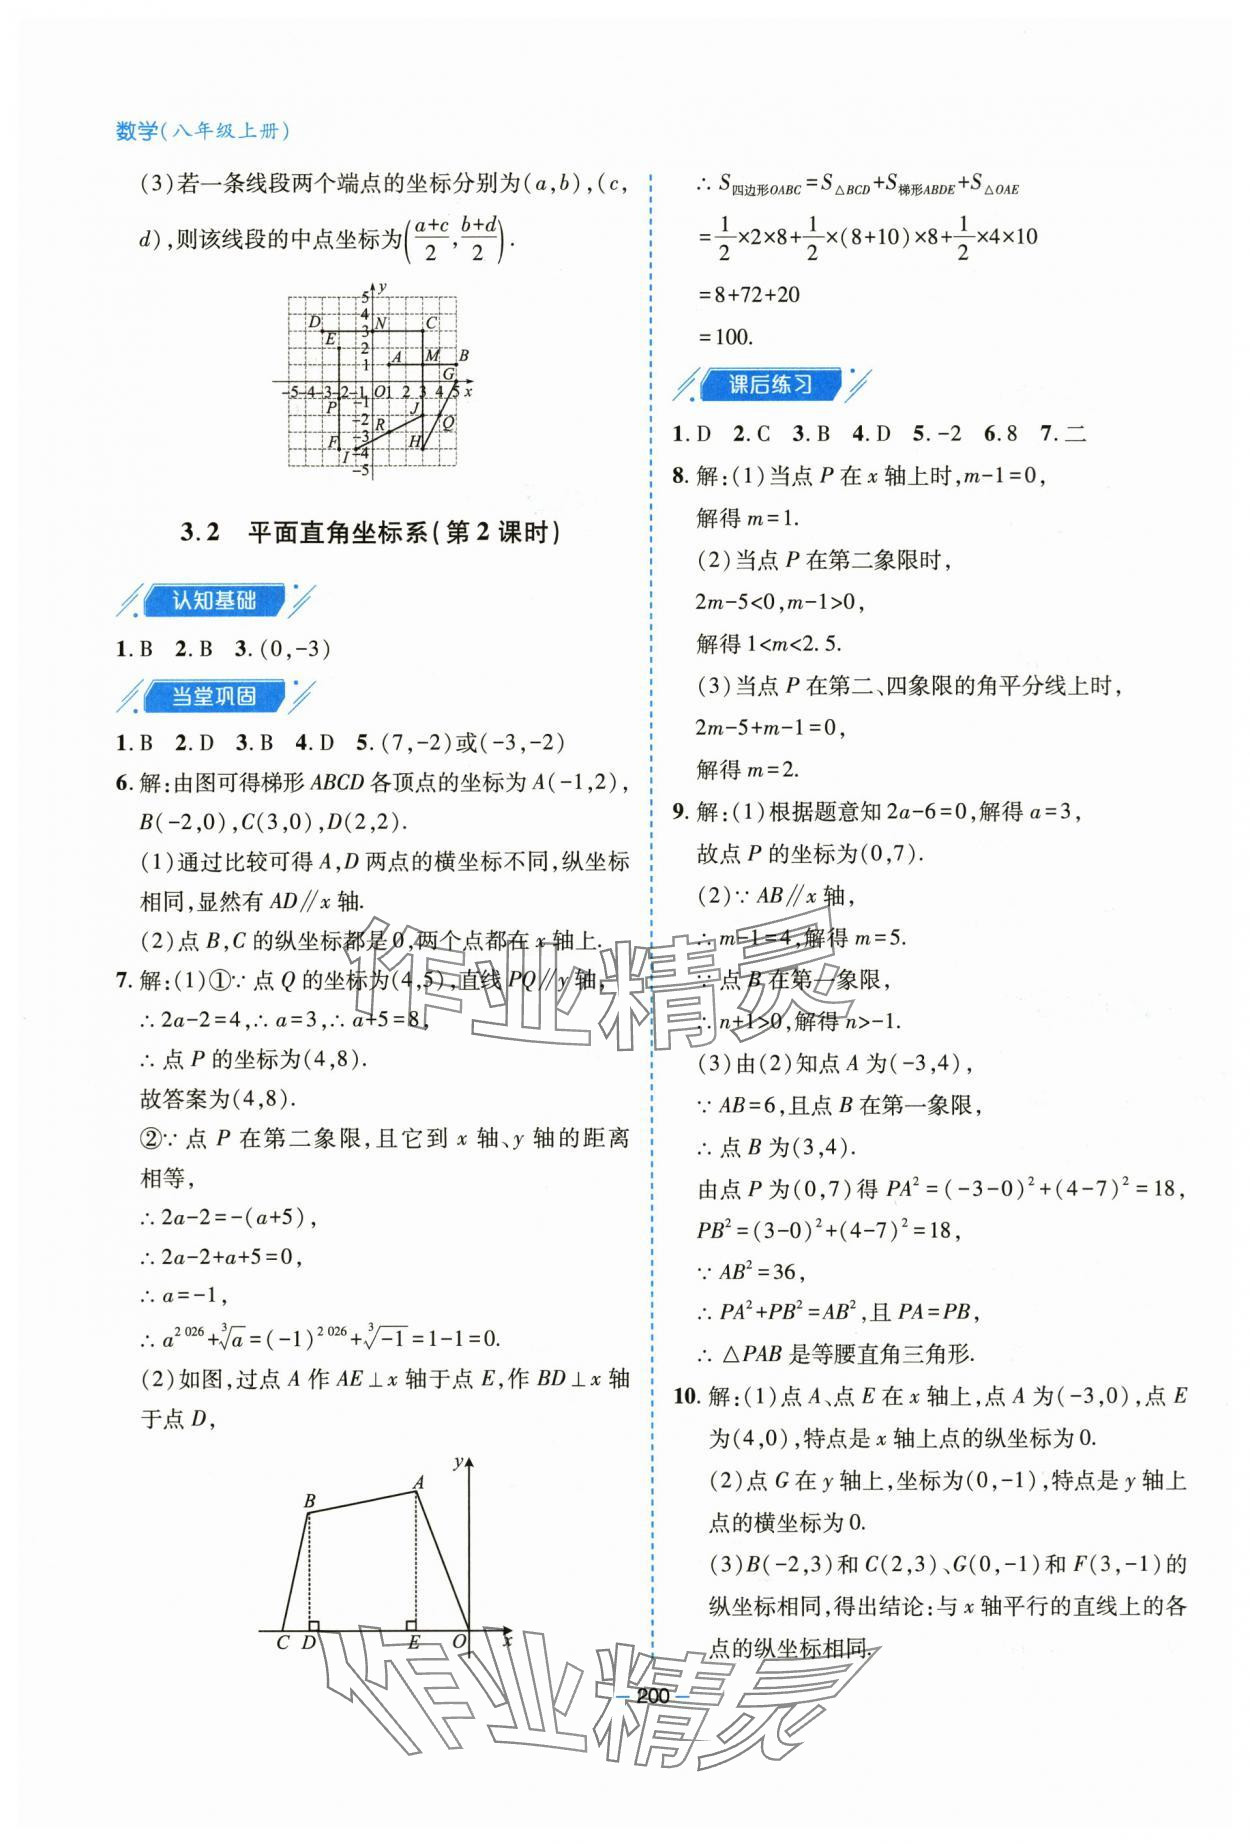 数学(八年级上册)
(3)若一条线段两个端点的坐标分别为(a,b),(c,
d),则该线段的中点坐标为((a+c)/2,(b+d)/2).
y
5
4
D N 3 C
E 2
1 A M B
G
-5-4-3-2-1 O 1 2 3 4 5 x
P -1
-2 J
R Q
F -3 H
I -4
-5
3.2 平面直角坐标系(第2课时)
认知基础
1. B 2. B 3. (0,-3)
当堂巩固
1. B 2. D 3. B 4. D 5. (7,-2)或(-3,-2)
6. 解:由图可得梯形ABCD各顶点的坐标为A(-1,2),
B(-2,0),C(3,0),D(2,2).
(1)通过比较可得A,D两点的横坐标不同,纵坐标
相同,显然有AD∥x轴.
(2)点B,C的纵坐标都是0,两个点都在x轴上.
7. 解:(1)①∵点Q的坐标为(4,5),直线PQ∥y轴,
∴2a-2=4,∴a=3,∴a+5=8,
∴点P的坐标为(4,8).
故答案为(4,8).
②∵点P在第二象限,且它到x轴、y轴的距离
相等,
∴2a-2=-(a+5),
∴2a-2+a+5=0,
∴a=-1,
∴a^{2 026}+∛a=(-1)^{2 026}+∛-1=1-1=0.
(2)如图,过点A作AE⊥x轴于点E,作BD⊥x轴
于点D,
y
A
B
C D E O x
∴S四边形OABC=S△BCD+S梯形ABDE+S△OAE
=1/2×2×8+1/2×(8+10)×8+1/2×4×10
=8+72+20
=100.
课后练习
1. D 2. C 3. B 4. D 5. -2 6. 8 7. 二
8. 解:(1)当点P在x轴上时,m-1=0,
解得m=1.
(2)当点P在第二象限时,
2m-5<0,m-1>0,
解得1<m<2.5.
(3)当点P在第二、四象限的角平分线上时,
2m-5+m-1=0,
解得m=2.
9. 解:(1)根据题意知2a-6=0,解得a=3,
故点P的坐标为(0,7).
(2)∵AB∥x轴,
∴m-1=4,解得m=5.
∵点B在第一象限,
∴n+1>0,解得n>-1.
(3)由(2)知点A为(-3,4),
∵AB=6,且点B在第一象限,
∴点B为(3,4).
由点P为(0,7)得PA²=(-3-0)²+(4-7)²=18,
PB²=(3-0)²+(4-7)²=18,
∵AB²=36,
∴PA²+PB²=AB²,且PA=PB,
∴△PAB是等腰直角三角形.
10. 解:(1)点A、点E在x轴上,点A为(-3,0),点E
为(4,0),特点是x轴上点的纵坐标为0.
(2)点G在y轴上,坐标为(0,-1),特点是y轴上
点的横坐标为0.
(3)B(-2,3)和C(2,3)、G(0,-1)和F(3,-1)的
纵坐标相同,得出结论:与x轴平行的直线上的各
点的纵坐标相同.
200
作业精灵
作业精灵